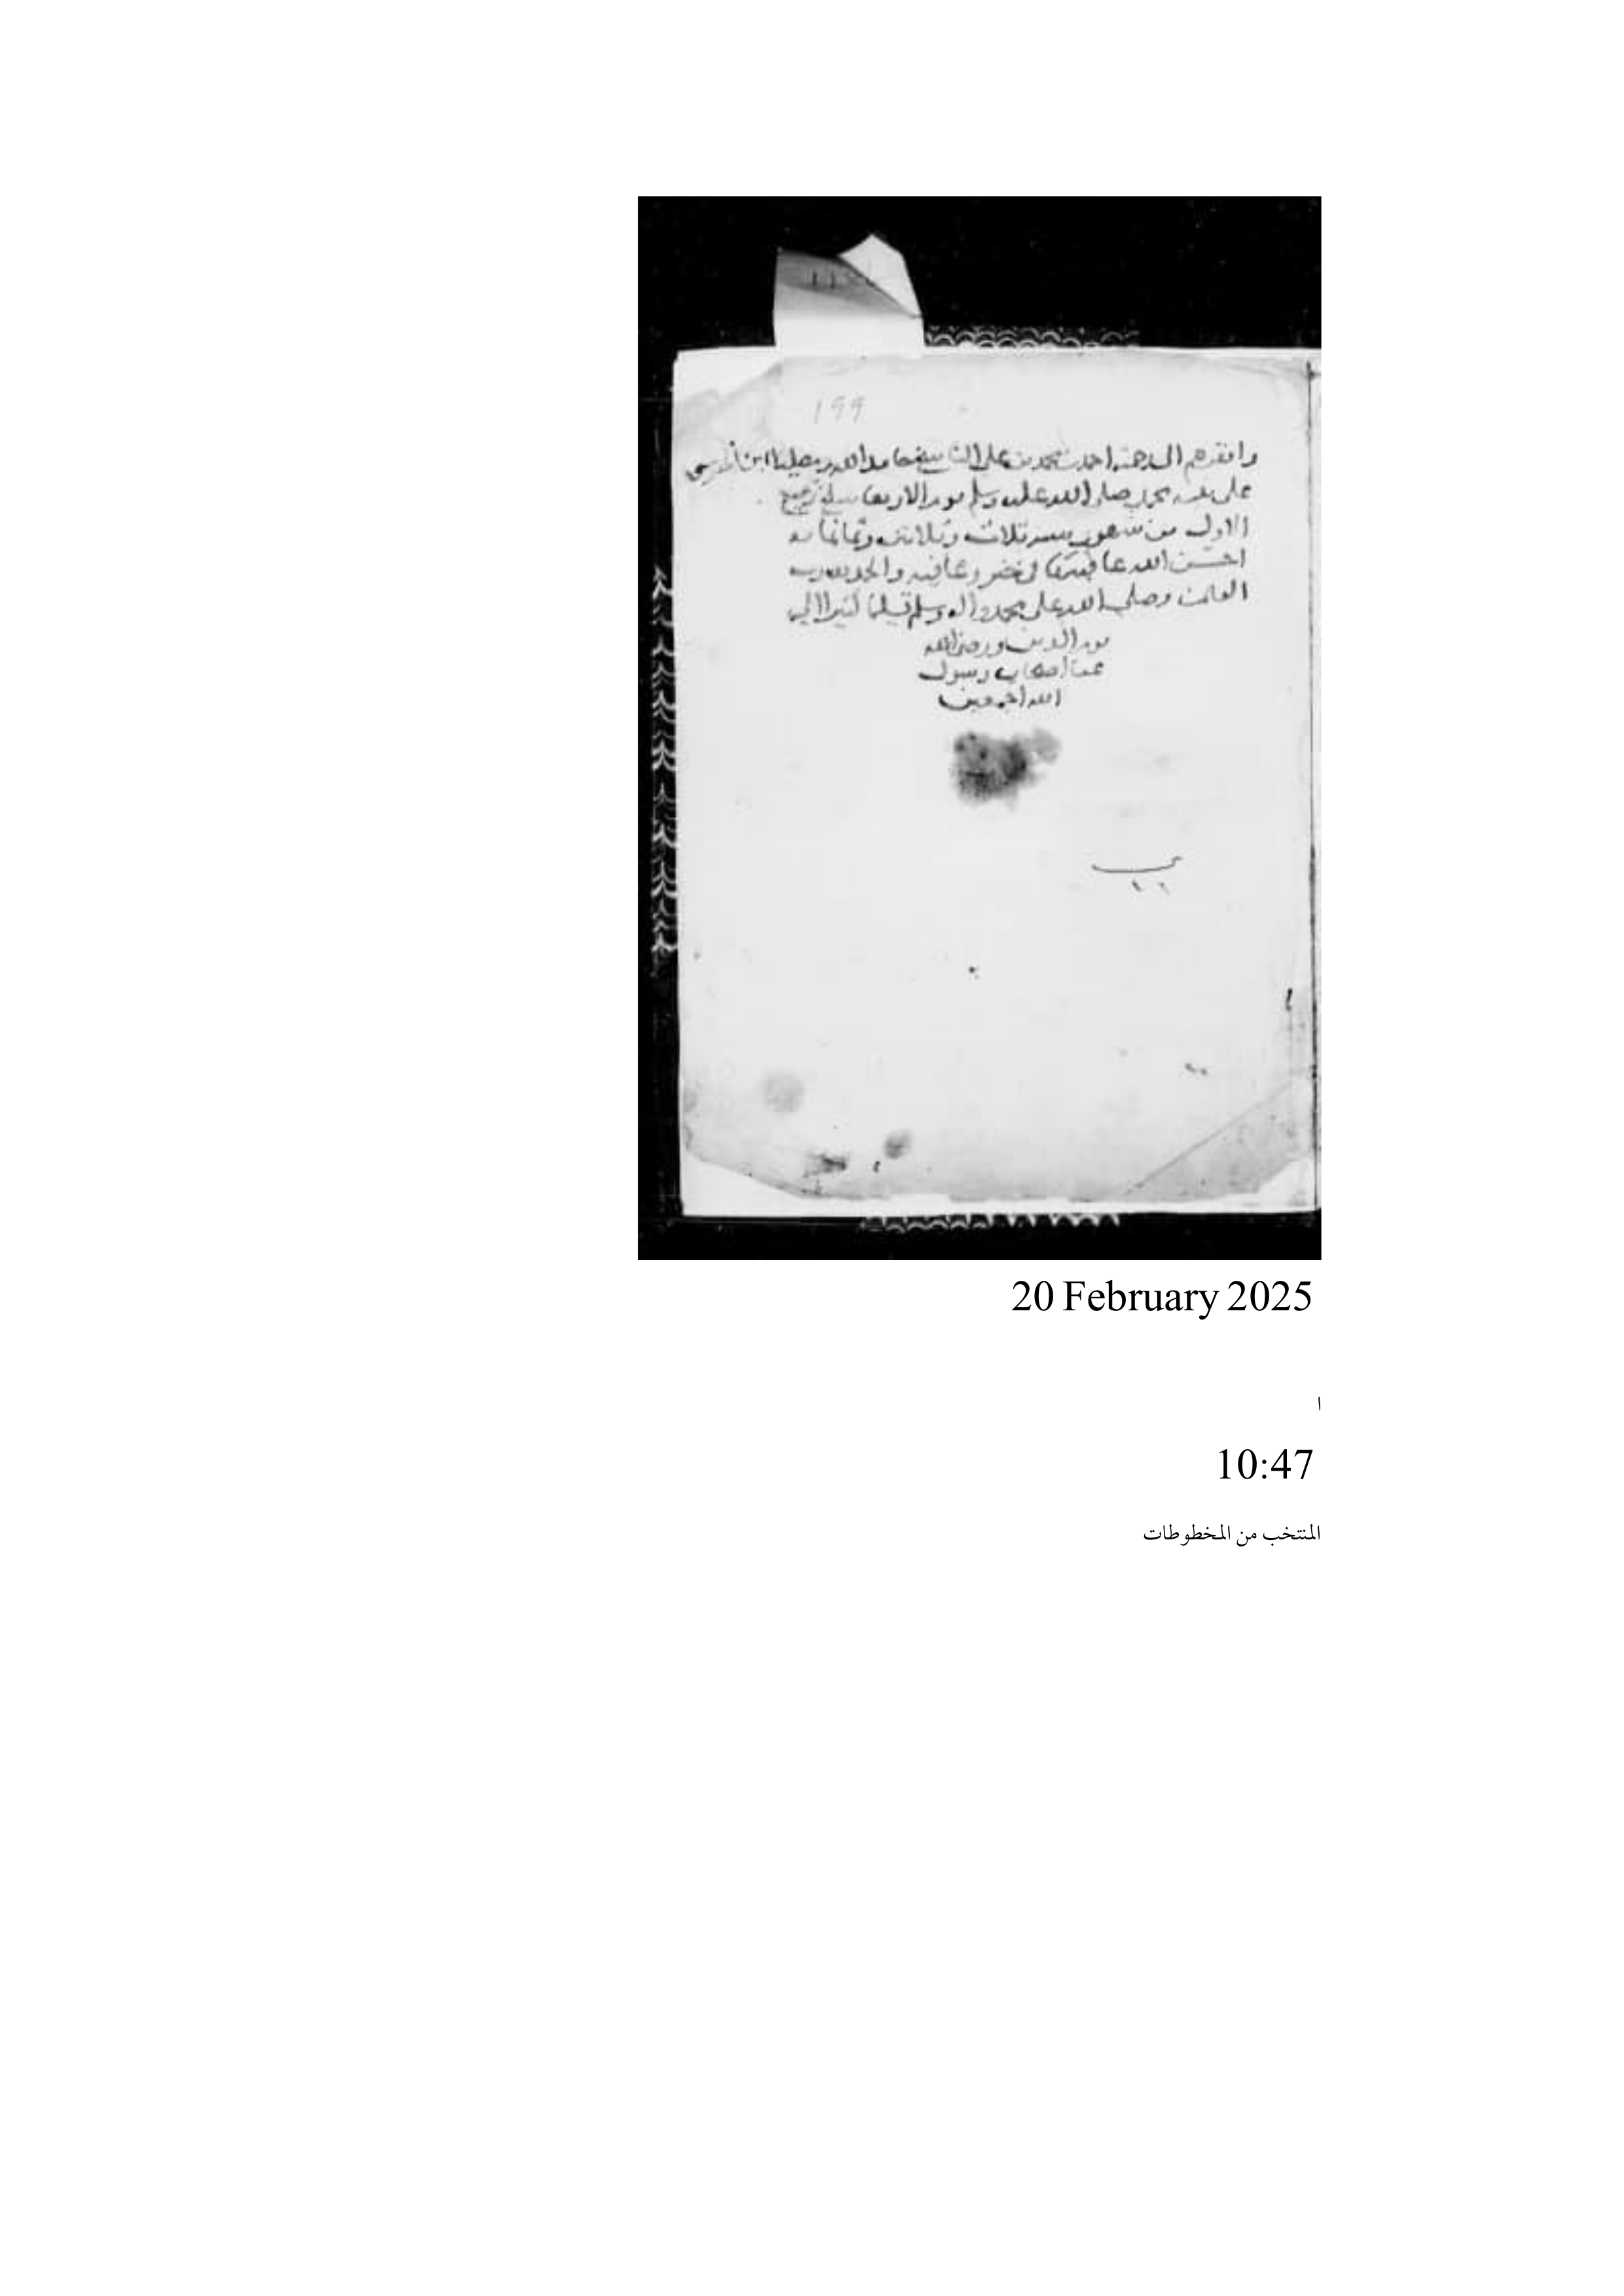 199
وافقرهم الى رحمته احمد بن محمد بن علي حامدا لله ومصليا
على محمد صلى الله عليه وسلم يوم الاربعا سلخ ربيع
الاول من شهور سنه ثلاث وثلاثين وثمانمايه
احسن الله عاقبتها في خير وعافيه والحمد لله رب
العالمين وصلى الله على محمد واله وسلم تسليما كثيرا الى
يوم الدين ورضى الله
عن اصحاب رسول
الله اجمعين
20 February 2025
ا
10:47
المنتخب من المخطوطات